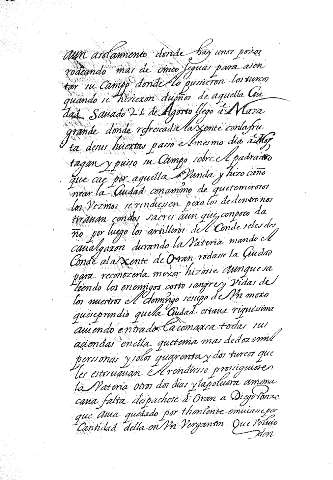 aun asolamiento donde hay unos pozos
rodeando mas de cinco leguas para asen
tar su Campo donde lo pusieron los turcos
quando se hizieron dueños de aquella Ciu
dad Savado 21 de Agosto llego a Maza
grande donde refrescada la xente con la fru
ta de sus huertas paso el mesmo dia a Mos
tagan y puso su Campo sobre el
que cae por aquella Vanda y hizo caño
near la Ciudad con animo de que temerosos
los Vezinos se rindiesen pero los de dentro nos
tiravan con dos sacres aunque con poco da
ño por luego los artilleros del Conde se los des
cavalgaron durando la Vateria mando el
Conde a la xente de Oran rodase la Ciudad
para reconocerla mejor hizose aunque sa
biendo los enemigos costo sangre y Vidas de
los nuestros el domingo se supo de Un moro
que se prendio que la Ciudad estava riquissima
aviendo entrado la comarca todas sus
haziendas en ella que tenia mas de doze mil
personas y solos quarenta y dos turcos que
les estorvavan el rendirse prosiguiose
la Vateria otros dos dias y la polvora
falta despachose a Oran a Diego Ponze
que avia quedado por theniente embiase por
Cantidad della en Un Vergantin Que